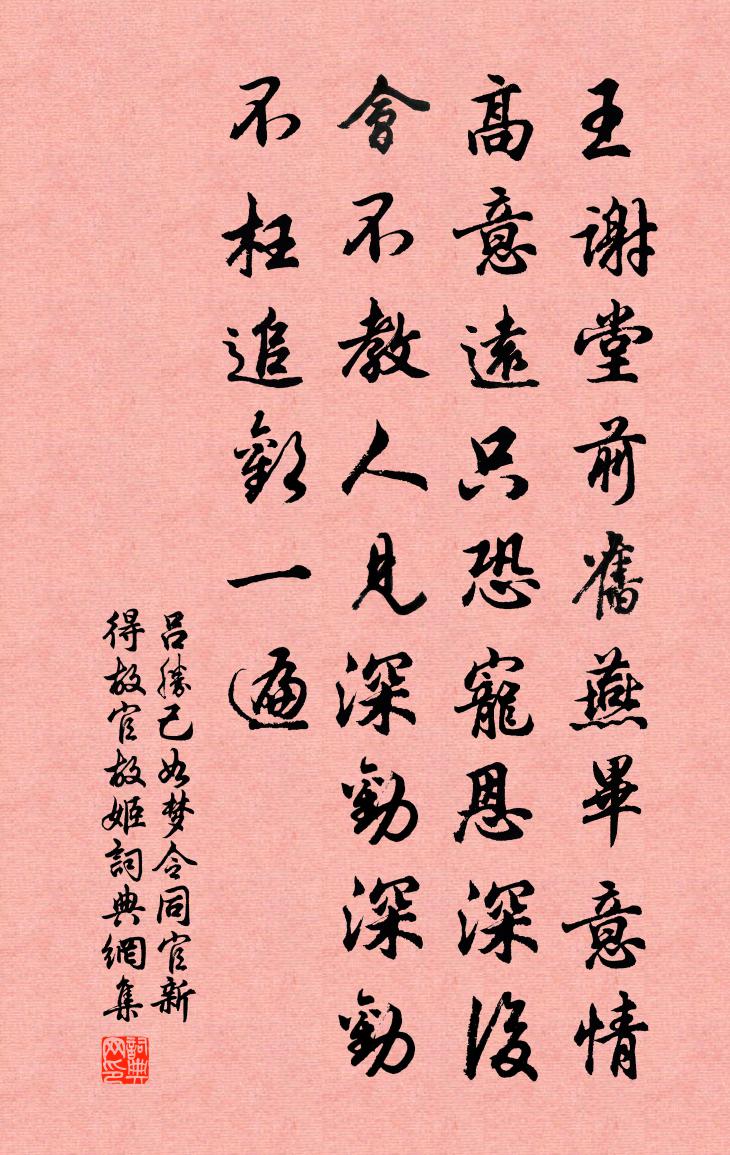 王謝堂前舊燕畢意情
高意遠只恐寵恩深後
會不教人見深勸深勸
不枉追歡一遍
吕勝己如梦令同官新
得故官故姬詞典網集
詞典网印